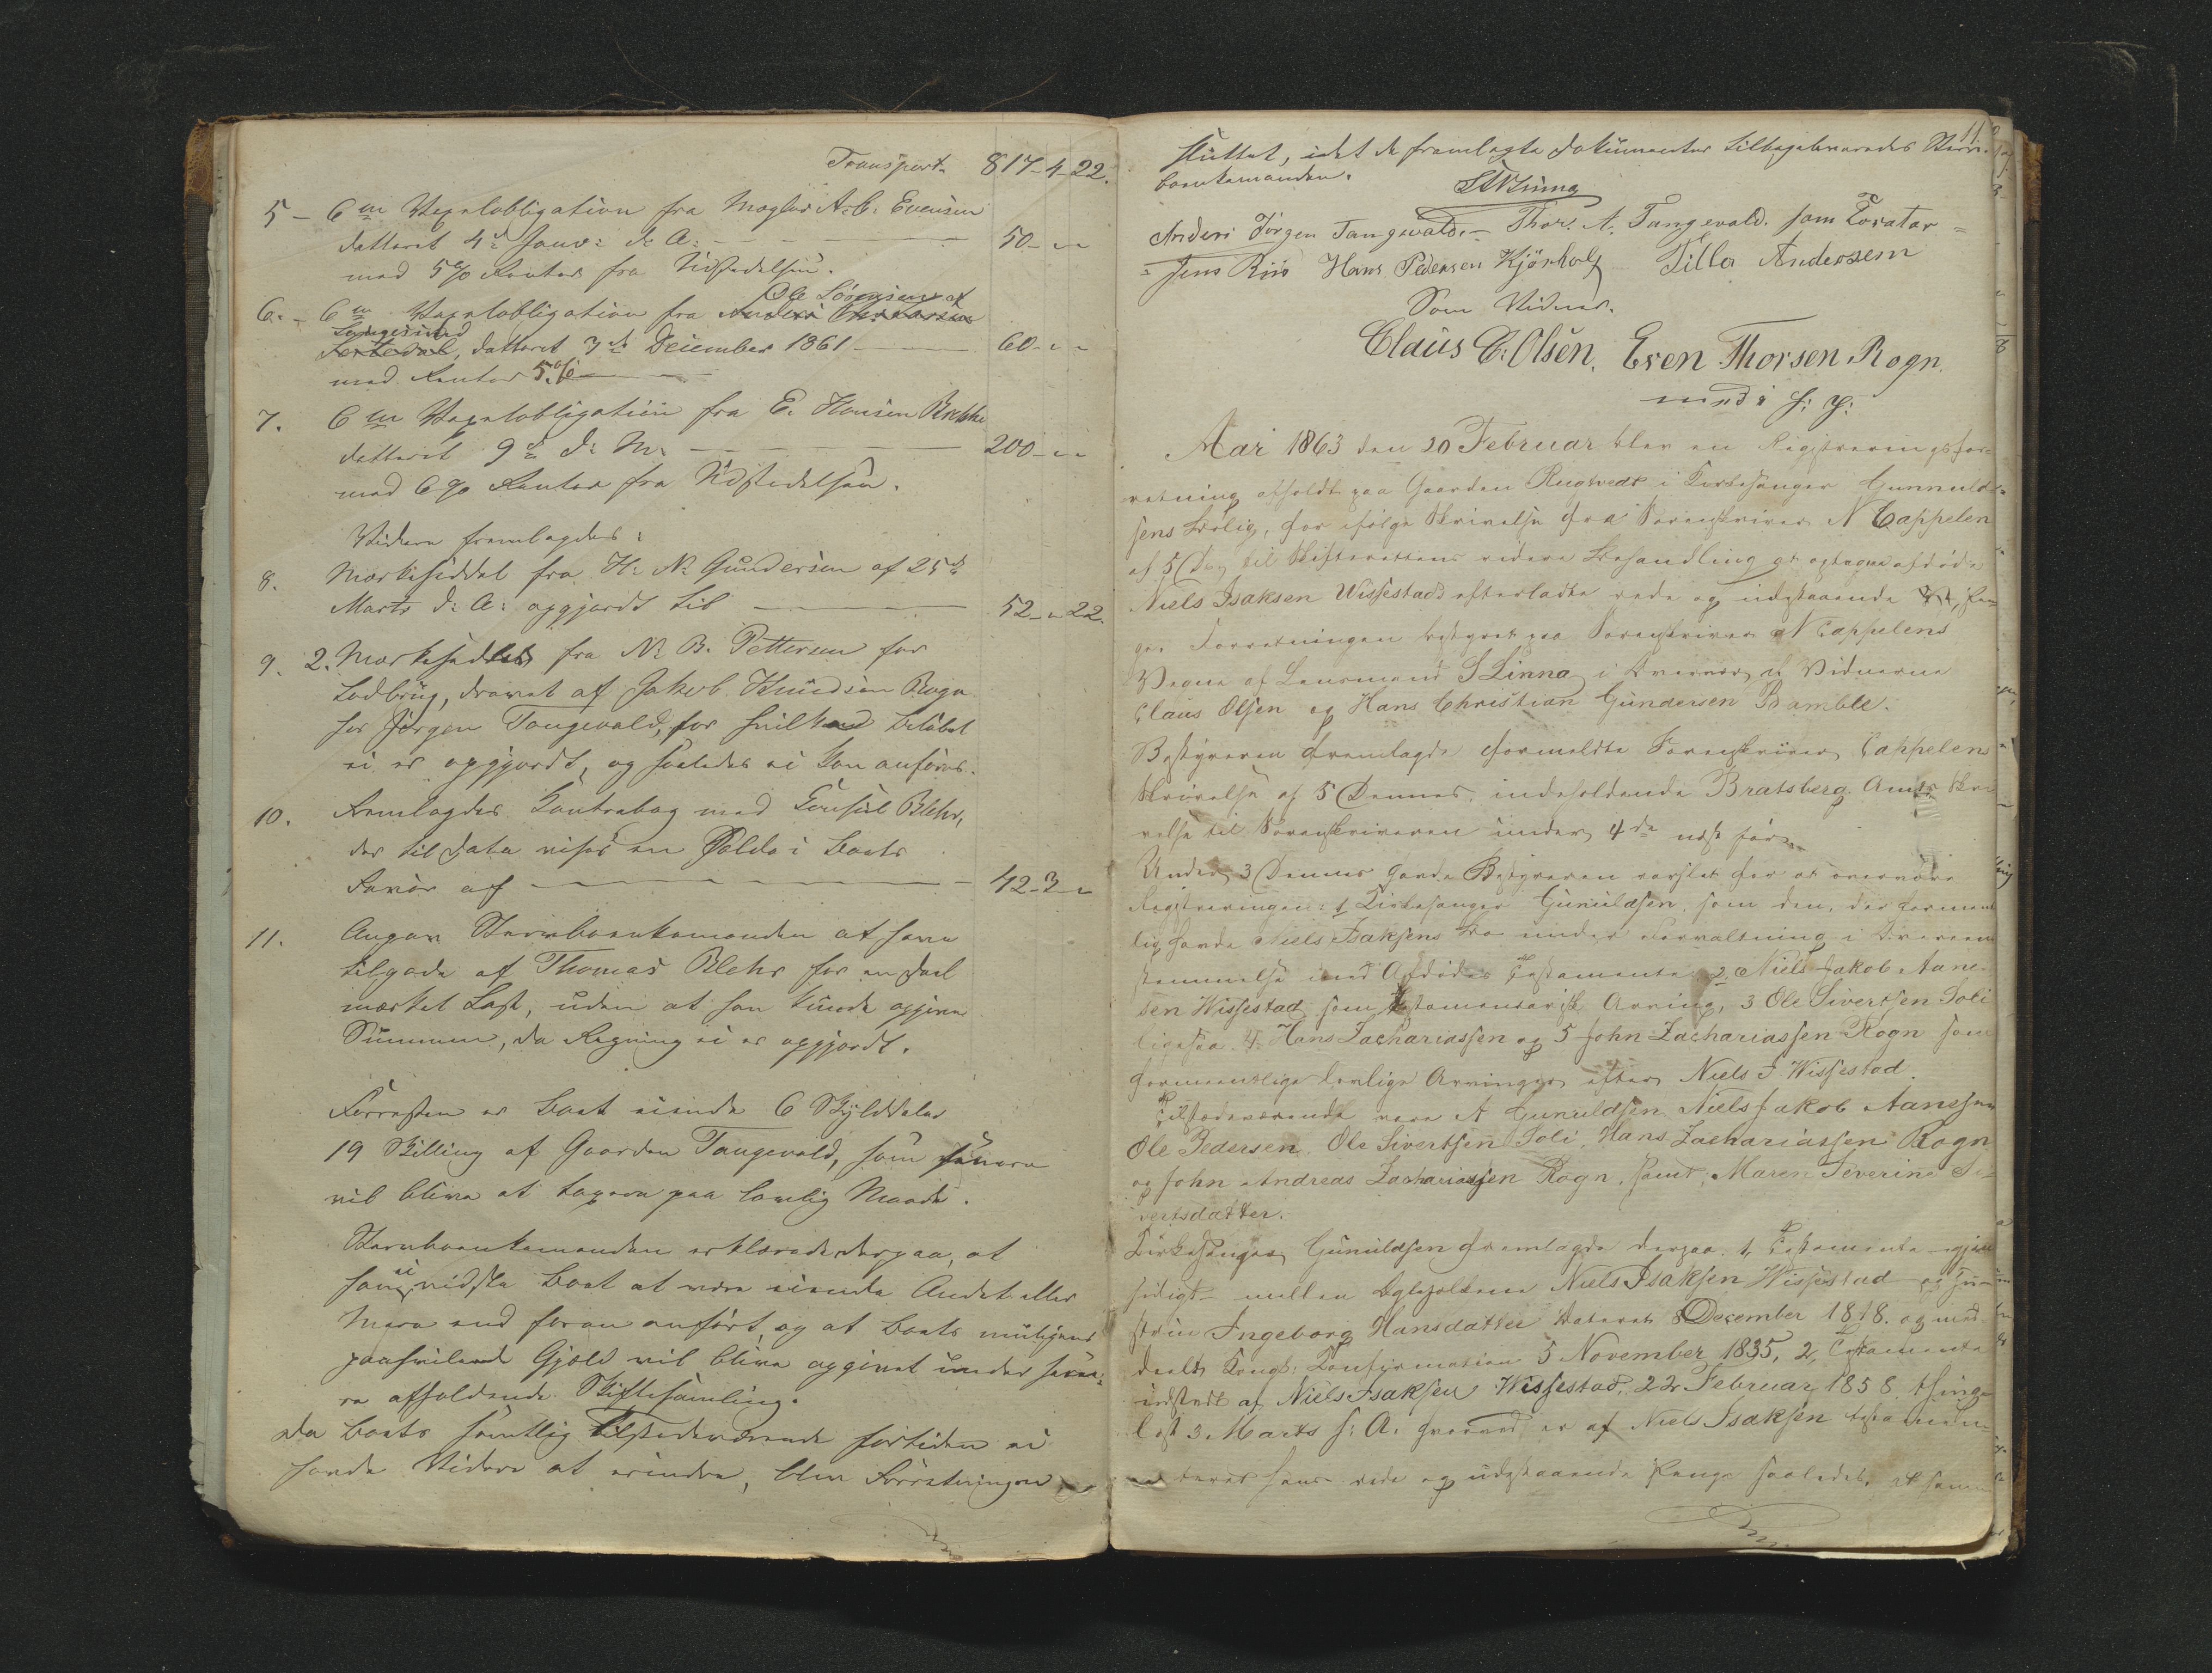 Transport 817-4-22.
5- En Vexelobligation fra Mægler A. C. Evensen
datteret 4de Janv: d. A: - 50 - " - "
med 5 % Renter fra Udstedelsen.
Ole Sörensen af
6.- En Vexelobligation fra
Langesund
datteret 3de December 1861 - 60 - " - "
med Renter 5 %
7. En Vexelobligation fra E. Hansen Brekke
datteret 9de d: M. - 200 - " - "
med 6 % Renter fra Udstedelsen.
Videre fremlagdes:
8. Mærkeseddel fra H. N. Gundersen af 25de
Marts d: A: opgjordt til - 52 - " - 22.
9. 2. Mærkesedler fra N. B. Pettersen for
Ladbrug, drevet af Jakob Knudsen Rogn
for Jörgen Tangevald, for hvilket Belöbet
ei er opgjordt, og saaledes ei kan anföres.
10. Fremlagdes Contrabog med Consul Blehr,
der til Data viser en Saldo i Boets
Favör af - 42-3-"
11. Angav Stervboenkemanden at have
tilgode af Thomas Blehr for en Deel
mærket Last, uden at han kunde opgive
Summen, da Regning ei er opgjordt.
Forresten er Boet eiende 6 Skylddaler
19 Skilling af Gaarden Tangevald, som senere
vil blive at taxere paa lovlig Maade.
Stervboenkemanden erklærede derpaa, at
han ei vidste Boet at være eiende Andet eller
Mere end foran anfört, og at Boets muligens
paahvilende Gjæld vil blive opgivet under sene-
re afholdende Skiftesamling.
Da Boets samtlig Tilstedeværende fortiden ei
havde Videre at erindre, blev Forretningen
11.
sluttet, idet de fremlagte Dokumenter tilbageleveredes Sterv-
boenkemanden.
S Linna
Anders Jörgen Tangevald. - Thor. A. Tangevald. som Curator -
- Jens Riis Hans Pedersen Kjörholt Tilla Andersen
Som Vidner.
Claus C: Olsen. Even Thorsen Rogn.
med i h: p:
Aar 1863 den 20 Februar blev en Registreringsfor-
retning afholdt paa Gaarden Rugtvedt i Kirkesanger Gunnuld-
sens Bolig, for ifölge Skrivelse fra Sorenskriver N Cappelen
af 5 Ds, til Skifterettens videre Behandling at optegne afdöde
Niels Isaksen Wissestads efterladte rede og udestaaende Pen-
ge. Forretningen bestyret paa Sorenskriver N Cappelens
Vegne af Lensmand S Linna i Overvær af Vidnerne
Claus Olsen og Hans Christian Gundersen Bamble.
Bestyreren fremlagde formeldte Sorenskriver Cappelens
Skrivelse af 5 Dennes, indeholdende Bratsberg Amts Skri-
velse til Sorenskriveren under 4de næst för.
Under 3 Dennes havde Bestyreren varslet for at overvære
Registreringen: 1 Kirkesanger Gunuldsen, som den, der forment-
lig havde Niels Isaksens Bo under Forvaltning i Overeens-
stemmelse med Afdödes Testamente 2 Niels Jakob Aane-
sen Wissestad som testamentarisk Arving, 3 Ole Sivertsen Soli
ligesaa 4 Hans Zachariassen og 5 John Zachariassen Rogn som
formeentlige lovlige Arvinger efter Niels I Wissestad.
Tilstedeværende vare A Gunuldsen, Niels Jakob Aanesen
Ole Pedersen, Ole Sivertsen Soli, Hans Zachariassen Rogn
og John Andreas Zachariassen Rogn, samt, Maren Severine Si-
vertsdatter.
Kirkesanger Gunuldsen fremlagde derpaa 1, Testamente gjen-
sidigt mellem Ægtefolkene Niels Isaksen Wissestad og Hu-
struen Ingeborg Hansdatter dateret 8 December 1818. og med-
deelt Kongl: Confirmation 5 November 1835, 2, Testamente
udstedt af Niels Isaksen Wissestad, 22 Februar 1858. thing-
læst 3 Marts s: A. hvorved er af Niels Isaksen testamen-
teret hans rede og udestaaende Penge saaledes, at